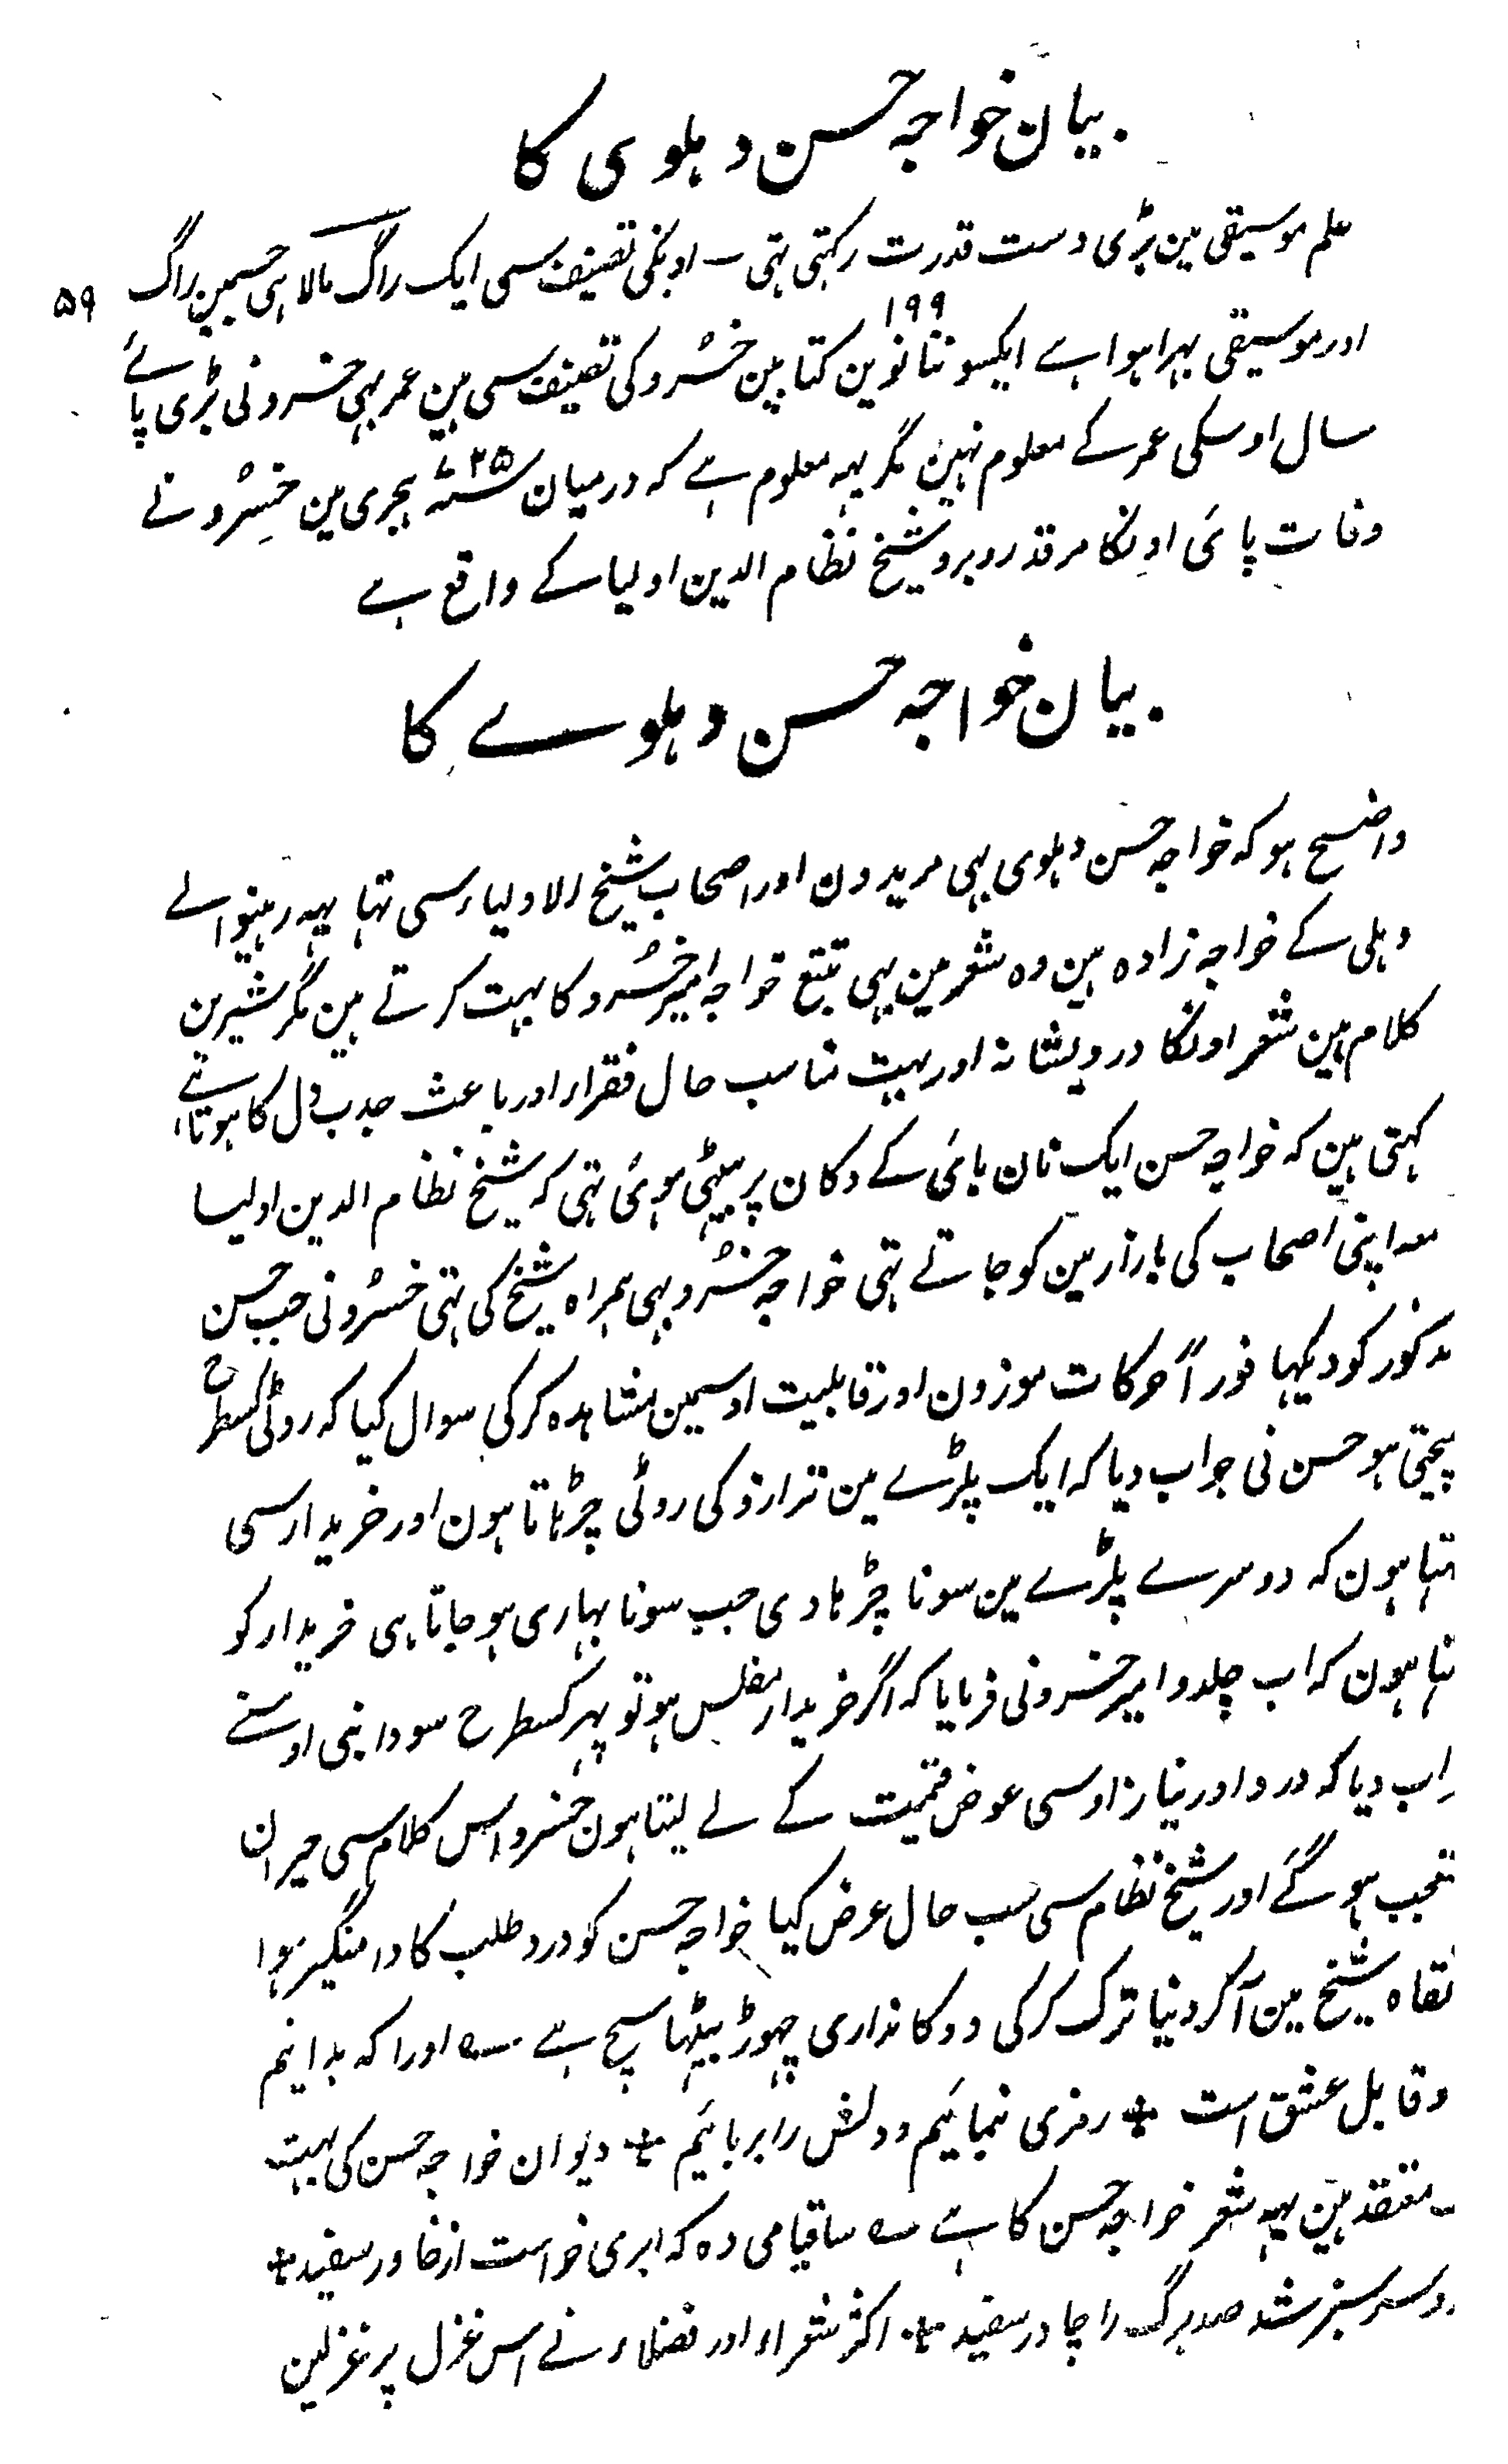 بیان خواجہ حسن دہلوی کا
علم موسیقی مین بڑی دست قدرت رکہتی تہی ۔ اونکی تصنیف سی ایک راگ مالا ہی جسمین راگ
۵۹
۱۹۹
اور موسیقی بہرا ہوا ہے ایکسو ننانوین کتابین خسرو کی تصنیف سی ہین عمر بہی خسرو نی بڑی پائے
سال اوسکی عمر کے معلوم نہین مگر یہہ معلوم ہے کہ درمیان ہجری مین خسرو نے
وفات پائی اونکا مرقد روبرو شیخ نظام الدین اولیا کے واقع ہے
بیان خواجہ حسن دہلوے کا
واضح ہو کہ خواجہ حسن دہلوی بہی مریدون اور اصحاب شیخ الاولیاء سی تہا یہہ رہنیوالے
دہلی کے خواجہ زادہ ہین وہ شعر مین بہی تتبع خواجہ امیر خسرو کا بہت کرتے ہین مگر شیرین
کلام ہین شعر اونکا درویشانہ اور بہت مناسب حال فقراء اور باعث جذب دل کا ہوتا ہے
کہتی ہین کہ خواجہ حسن ایک نان بائی کے دکان پر بیٹہی ہوئی تہی کہ شیخ نظام الدین اولیا
معہ اپنی اصحاب کی بازار مین کو جاتے تہی خواجہ خسرو بہی ہمراہ شیخ کی تہی خسرو نی جب حسن
مذکور کو دیکہا فوراً حرکات موزون اور قابلیت اوسمین مشاہدہ کرکی سوال کیا کہ روٹی کسطرح
بیچتی ہو حسن نی جواب دیا کہ ایک پلڑے مین ترازو کی روٹی چڑہاتا ہون اور خریدار سی
ہون کہ دوسرے پلڑے مین سونا چڑہا دی جب سونا بہاری ہو جاتا ہی خریدار کو
ہون کہ اب چلدو امیر خسرو نی فرمایا کہ اگر خریدار مفلس ہو تو پہر کسطرح سودا بنی اوسنے
اب دیا کہ درد اور نیاز اوسی عوض قیمت کے لے لیتا ہون خسرو اس کلام سی حیران
تعجب ہو گئے اور شیخ نظام سی سب حال عرض کیا خواجہ حسن کو درد طلب کا دامنگیر ہوا
نقاہ شیخ مین آکر دنیا ترک کرکی دوکانداری چہوڑ بیٹہا سچ ہے ؎ اورا کہ بدانیم
وقابل عشق است ٭ رمزی نمائیم و دلش را بربائیم ٭ دیوان خواجہ حسن کی بہت
معتقد ہین یہہ شعر خواجہ حسن کا ہے ؎ ساقیا می دہ کہ ابری خواست از خاور سفید ٭
سرو سرسبز شد صدبرگ را چادر سفید ٭ اکثر شعراء اور فضلاء نے اس غزل پر غزلین